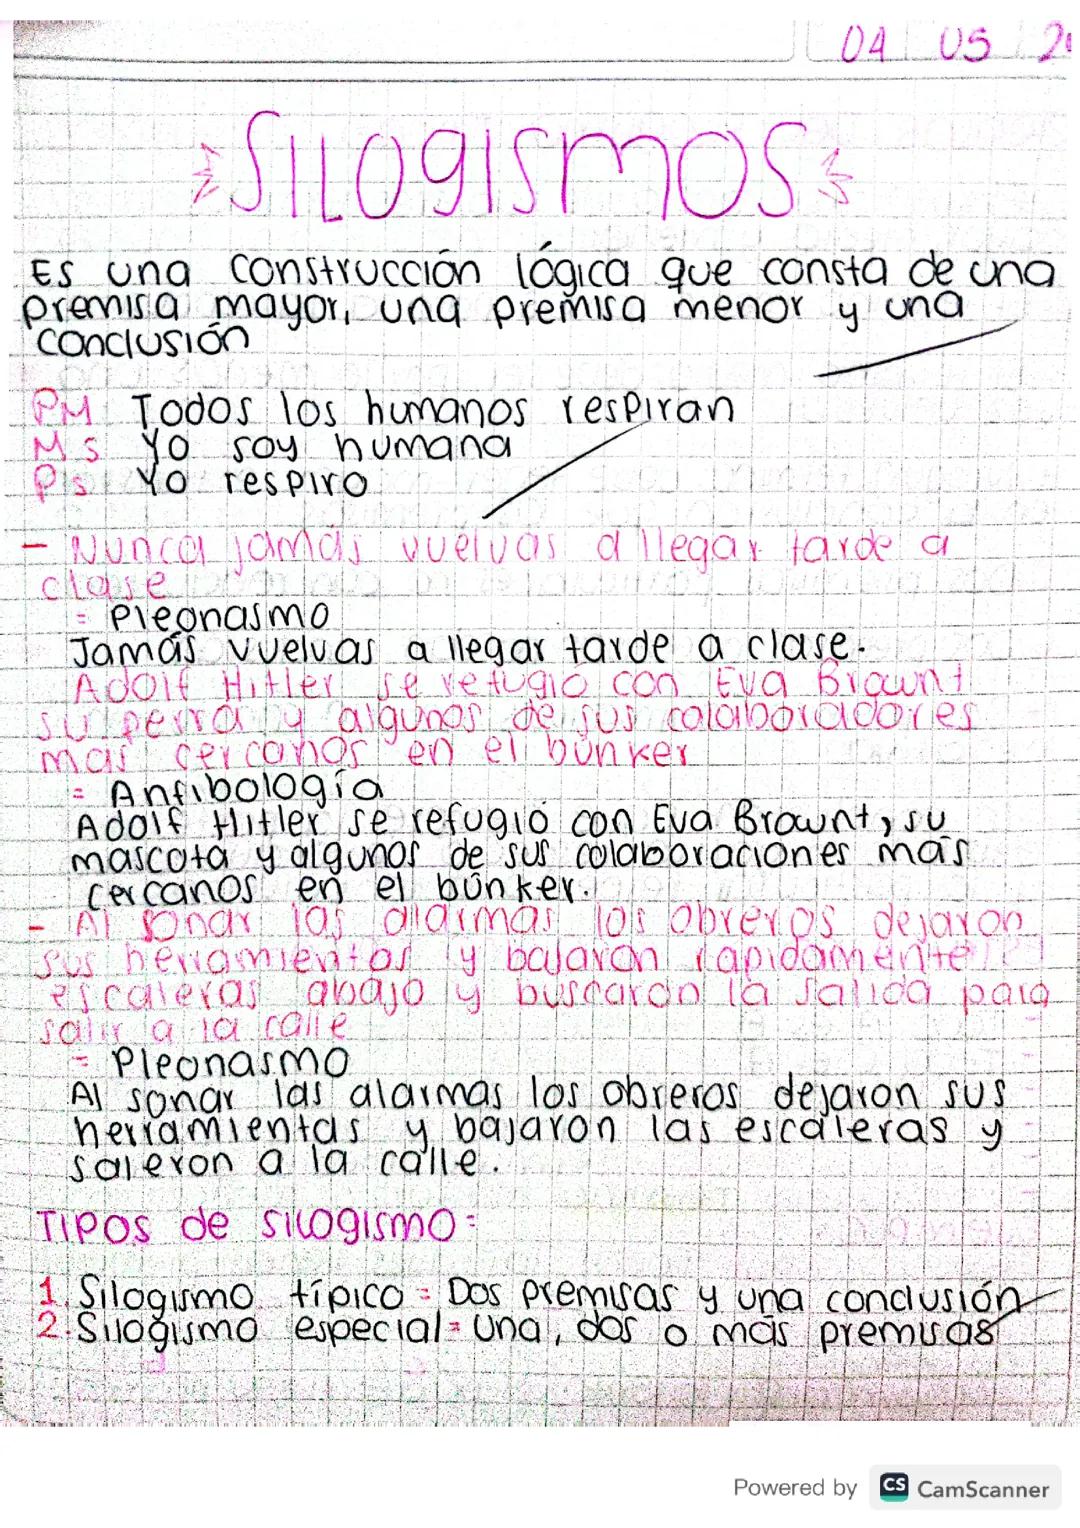 04 05 20
SILOGISMOS
Es una construcción lógica que consta de una
premisa mayor, una premisa menor y una
conclusión
PM Todos los humanos respiran
M s Yo soy humana
P s Yo respiro
- Nunca jamás vuelvas a llegar tarde a
clase
= Pleonasmo
Jamás vuelvas a llegar tarde a clase.
Adolf Hitler se refugió con Eva Brownt
su perra y algunos de sus colaboradores
mas cercanos en el búnker
= Anfibología
Adolf Hitler se refugió con Eva Brownt, su
mascota y algunos de sus colaboraciones más
cercanos en el búnker.
- Al sonar las alarmas los obreros dejaron
sus herramientas y bajaron rapidamente
escaleras abajo y buscaron la salida para
salir a la calle
= Pleonasmo
Al sonar las alarmas los obreros dejaron sus
herramientas y bajaron las escaleras y
saleron a la calle.
TIPOS de silogismo:
1. Silogismo típico = Dos premisas y una conclusión
2. Silogismo especial = Una, dos o más premisas
Powered by CS CamScanner